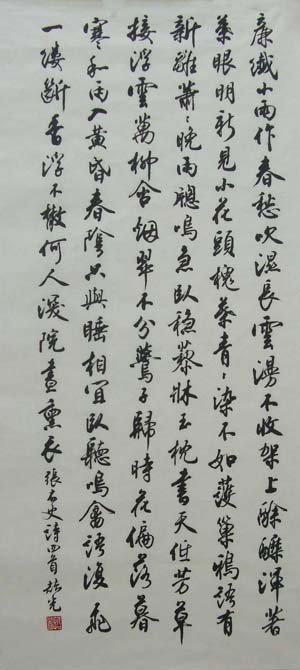 廉纖小雨作春愁吹濕長雲漫不收架上酴醾渾著
葉眼明新見小花頭槐葉青々染不如護巢鴉語有
新雛蕭々晚雨牕鳴急臥穩藜牀玉枕書天低芳草
接浮雲萬柳含烟翠不分鷰子歸時花偏落暮
寒和雨入黃昏春陰只與睡相宜臥聽鳴禽語復飛
一縷斷香浮不散何人深院晝熏衣張右史詩四首